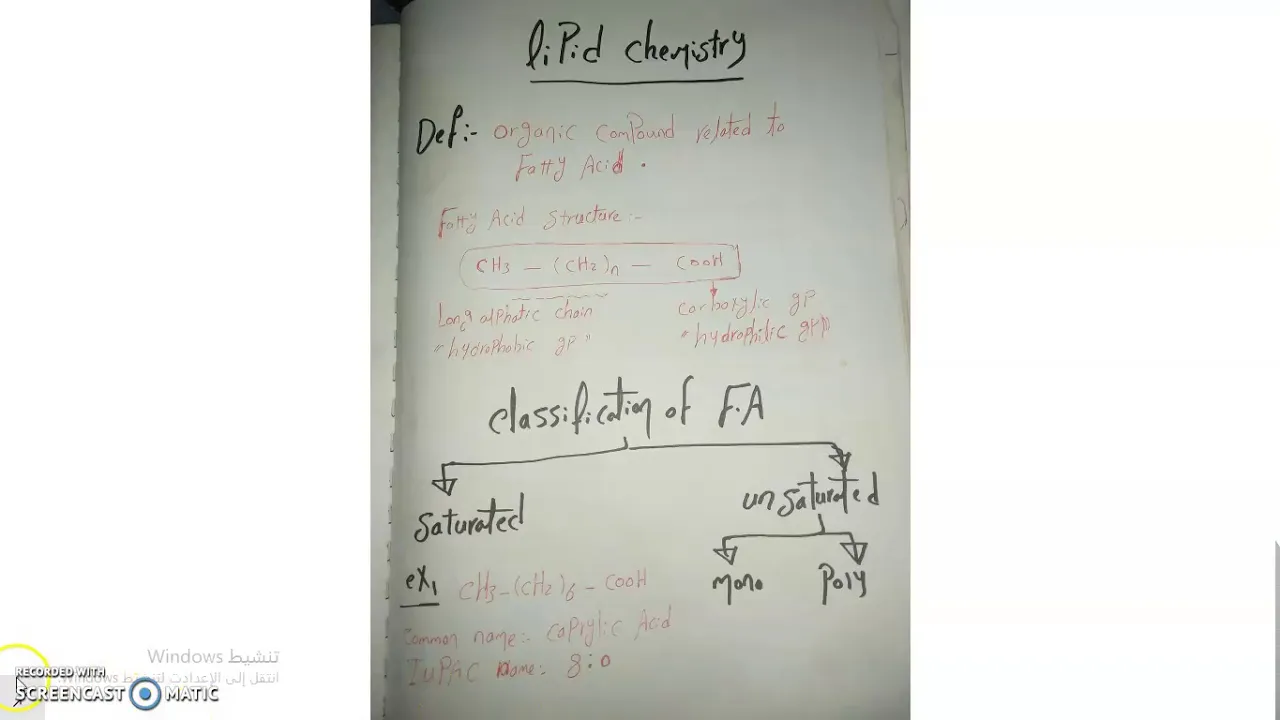 liPid chemistry
Def:- organic comPound related to
Fatty Acid .
Fatty Acid Structure:-
CH3 - (CH2)n - COOH
Long alphatic chain
"hydrophobic gp"
carboxylic gp
"hydrophilic gp"
classification of F.A
saturated
unsaturated
mono
Poly
ex1 CH3-(CH2)6-COOH
Common name:- CaPrylic Acid
IuPAC Name:- 8:0
تنشيط Windows
انتقل إلى الإعدادات لتنشيط Windows.
RECORDED WITH
SCREENCAST MATIC